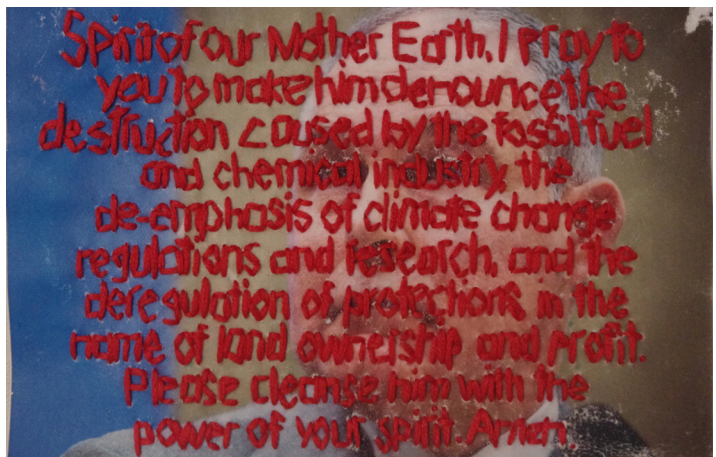 Spirit of our Mother Earth, I pray to
you to make him denounce the
destruction caused by the fossil fuel
and chemical industry, the
de-emphasis of climate change
regulations and research, and the
deregulation of protections in the
name of land ownership and profit.
Please cleanse him with the
power of your spirit. Amen.